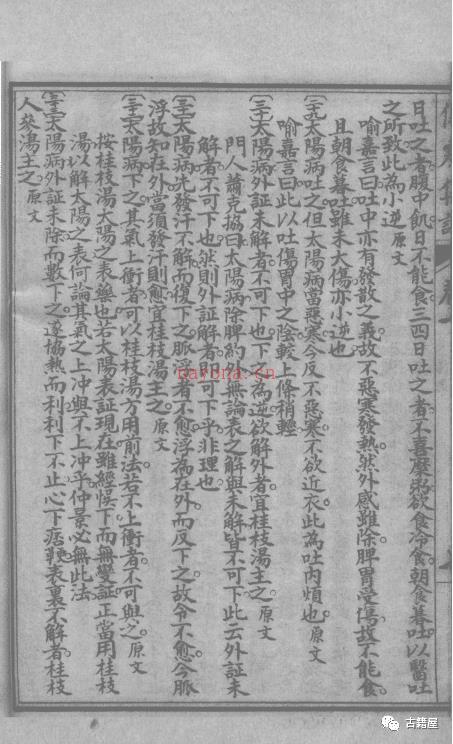 日吐之者腹中飢口不能食三四日吐之者不喜糜粥欲食冷食朝食暮吐以醫吐
之所致此為小逆 原文
喻嘉言曰吐中亦有發散之義故不惡寒發熱然外感雖除脾胃受傷故不能食
且朝食暮吐雖未大傷亦小逆也
太陽病吐之但太陽病當惡寒今反不惡寒不欲近衣此為吐內煩也 原文
喻嘉言曰此以吐傷胃中之陰較上條稍輕
三十 太陽病外証未解者不可下也下之為逆欲解外者宜桂枝湯主之 原文
門人蕭克協曰太陽病除脾約一証無論表之解與未解皆不可下此云外証未
解者不可下也然則外証解者則可下乎非理也
太陽病先發汗不解而復下之脈浮者不愈浮為在外而反下之故令不愈今脈
浮故知在外當須發汗則愈宜桂枝湯主之 原文
太陽病下之其氣上衝者可以桂枝湯方用前法若不上衝者不可與之 原文
按桂枝湯太陽之表藥也若太陽表証現在雖經悮下而無變証正當用桂枝
湯以解太陽之表何論其氣之上沖與不上沖乎仲景必無此法
太陽病外証未除而數下之遂協熱而利利下不止心下痞鞕表裏不解者桂枝
人參湯主之 原文
nayona.cn
古籍屋